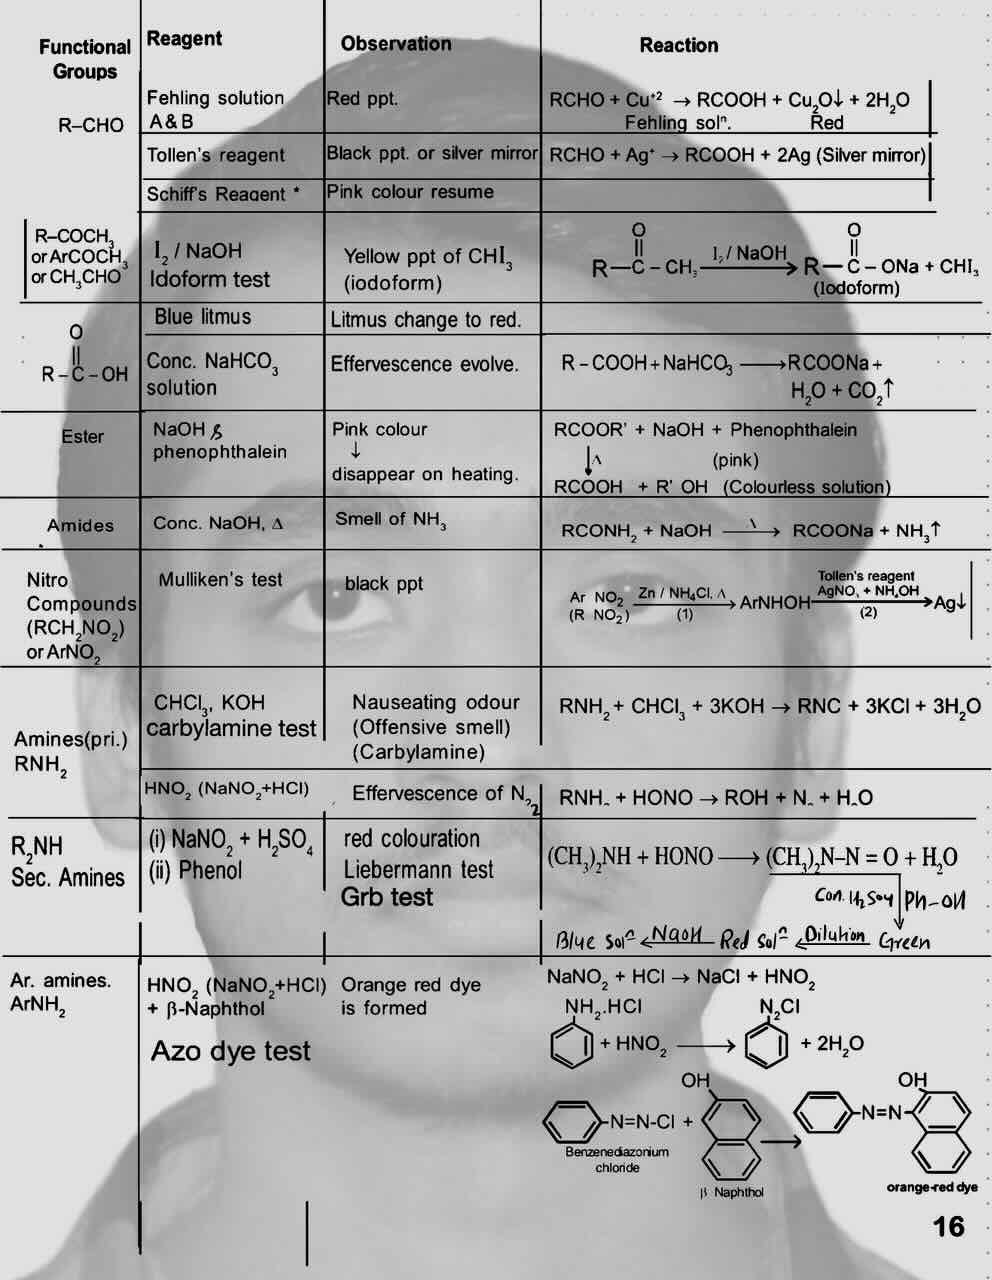 Functional Groups | Reagent | Observation | Reaction
R–CHO | Fehling solution A & B | Red ppt. | RCHO + Cu⁺² → RCOOH + Cu₂O↓ + 2H₂O
Fehling solⁿ. Red
Tollen's reagent | Black ppt. or silver mirror | RCHO + Ag⁺ → RCOOH + 2Ag (Silver mirror)
Schiff's Reagent * | Pink colour resume
R–COCH₃
or ArCOCH₃
or CH₃CHO
I₂ / NaOH
Idoform test
Yellow ppt of CHI₃
(iodoform)
O O
R–C–CH₃ I₂/ NaOH → R–C–ONa + CHI₃
(Iodoform)
O
R–C–OH
Blue litmus | Litmus change to red.
Conc. NaHCO₃
solution
Effervescence evolve.
R–COOH + NaHCO₃ → RCOONa +
H₂O + CO₂↑
Ester
NaOH β
phenophthalein
Pink colour
↓
disappear on heating.
RCOOR' + NaOH + Phenophthalein
↓Δ (pink)
RCOOH + R' OH (Colourless solution)
Amides | Conc. NaOH, Δ | Smell of NH₃ | RCONH₂ + NaOH Δ → RCOONa + NH₃↑
Nitro
Compounds
(RCH₂NO₂)
or ArNO₂
Mulliken's test
black ppt
Ar NO₂
(R NO₂)
Zn / NH₄Cl, Δ →
(1)
ArNHOH
Tollen's reagent
AgNO₃ + NH₄OH →
(2)
Ag↓
Amines(pri.)
RNH₂
CHCl₃, KOH
carbylamine test
Nauseating odour
(Offensive smell)
(Carbylamine)
RNH₂ + CHCl₃ + 3KOH → RNC + 3KCl + 3H₂O
HNO₂ (NaNO₂+HCl) | Effervescence of N₂ | RNH₂ + HONO → ROH + N₂ + H₂O
R₂NH
Sec. Amines
(i) NaNO₂ + H₂SO₄
(ii) Phenol
red colouration
Liebermann test
Grb test
(CH₃)₂NH + HONO → (CH₃)₂N–N = O + H₂O
Con. H₂SO₄ ↓ Ph–OH
Blue Solⁿ ← NaOH Red Solⁿ ← Dilution Green
Ar. amines.
ArNH₂
HNO₂ (NaNO₂+HCl)
+ β-Naphthol
Azo dye test
Orange red dye
is formed
NaNO₂ + HCl → NaCl + HNO₂
NH₂.HCl N₂Cl
+ HNO₂ → + 2H₂O
OH OH
N=N-Cl + → N=N
Benzenediazonium
chloride
β Naphthol
orange-red dye
16